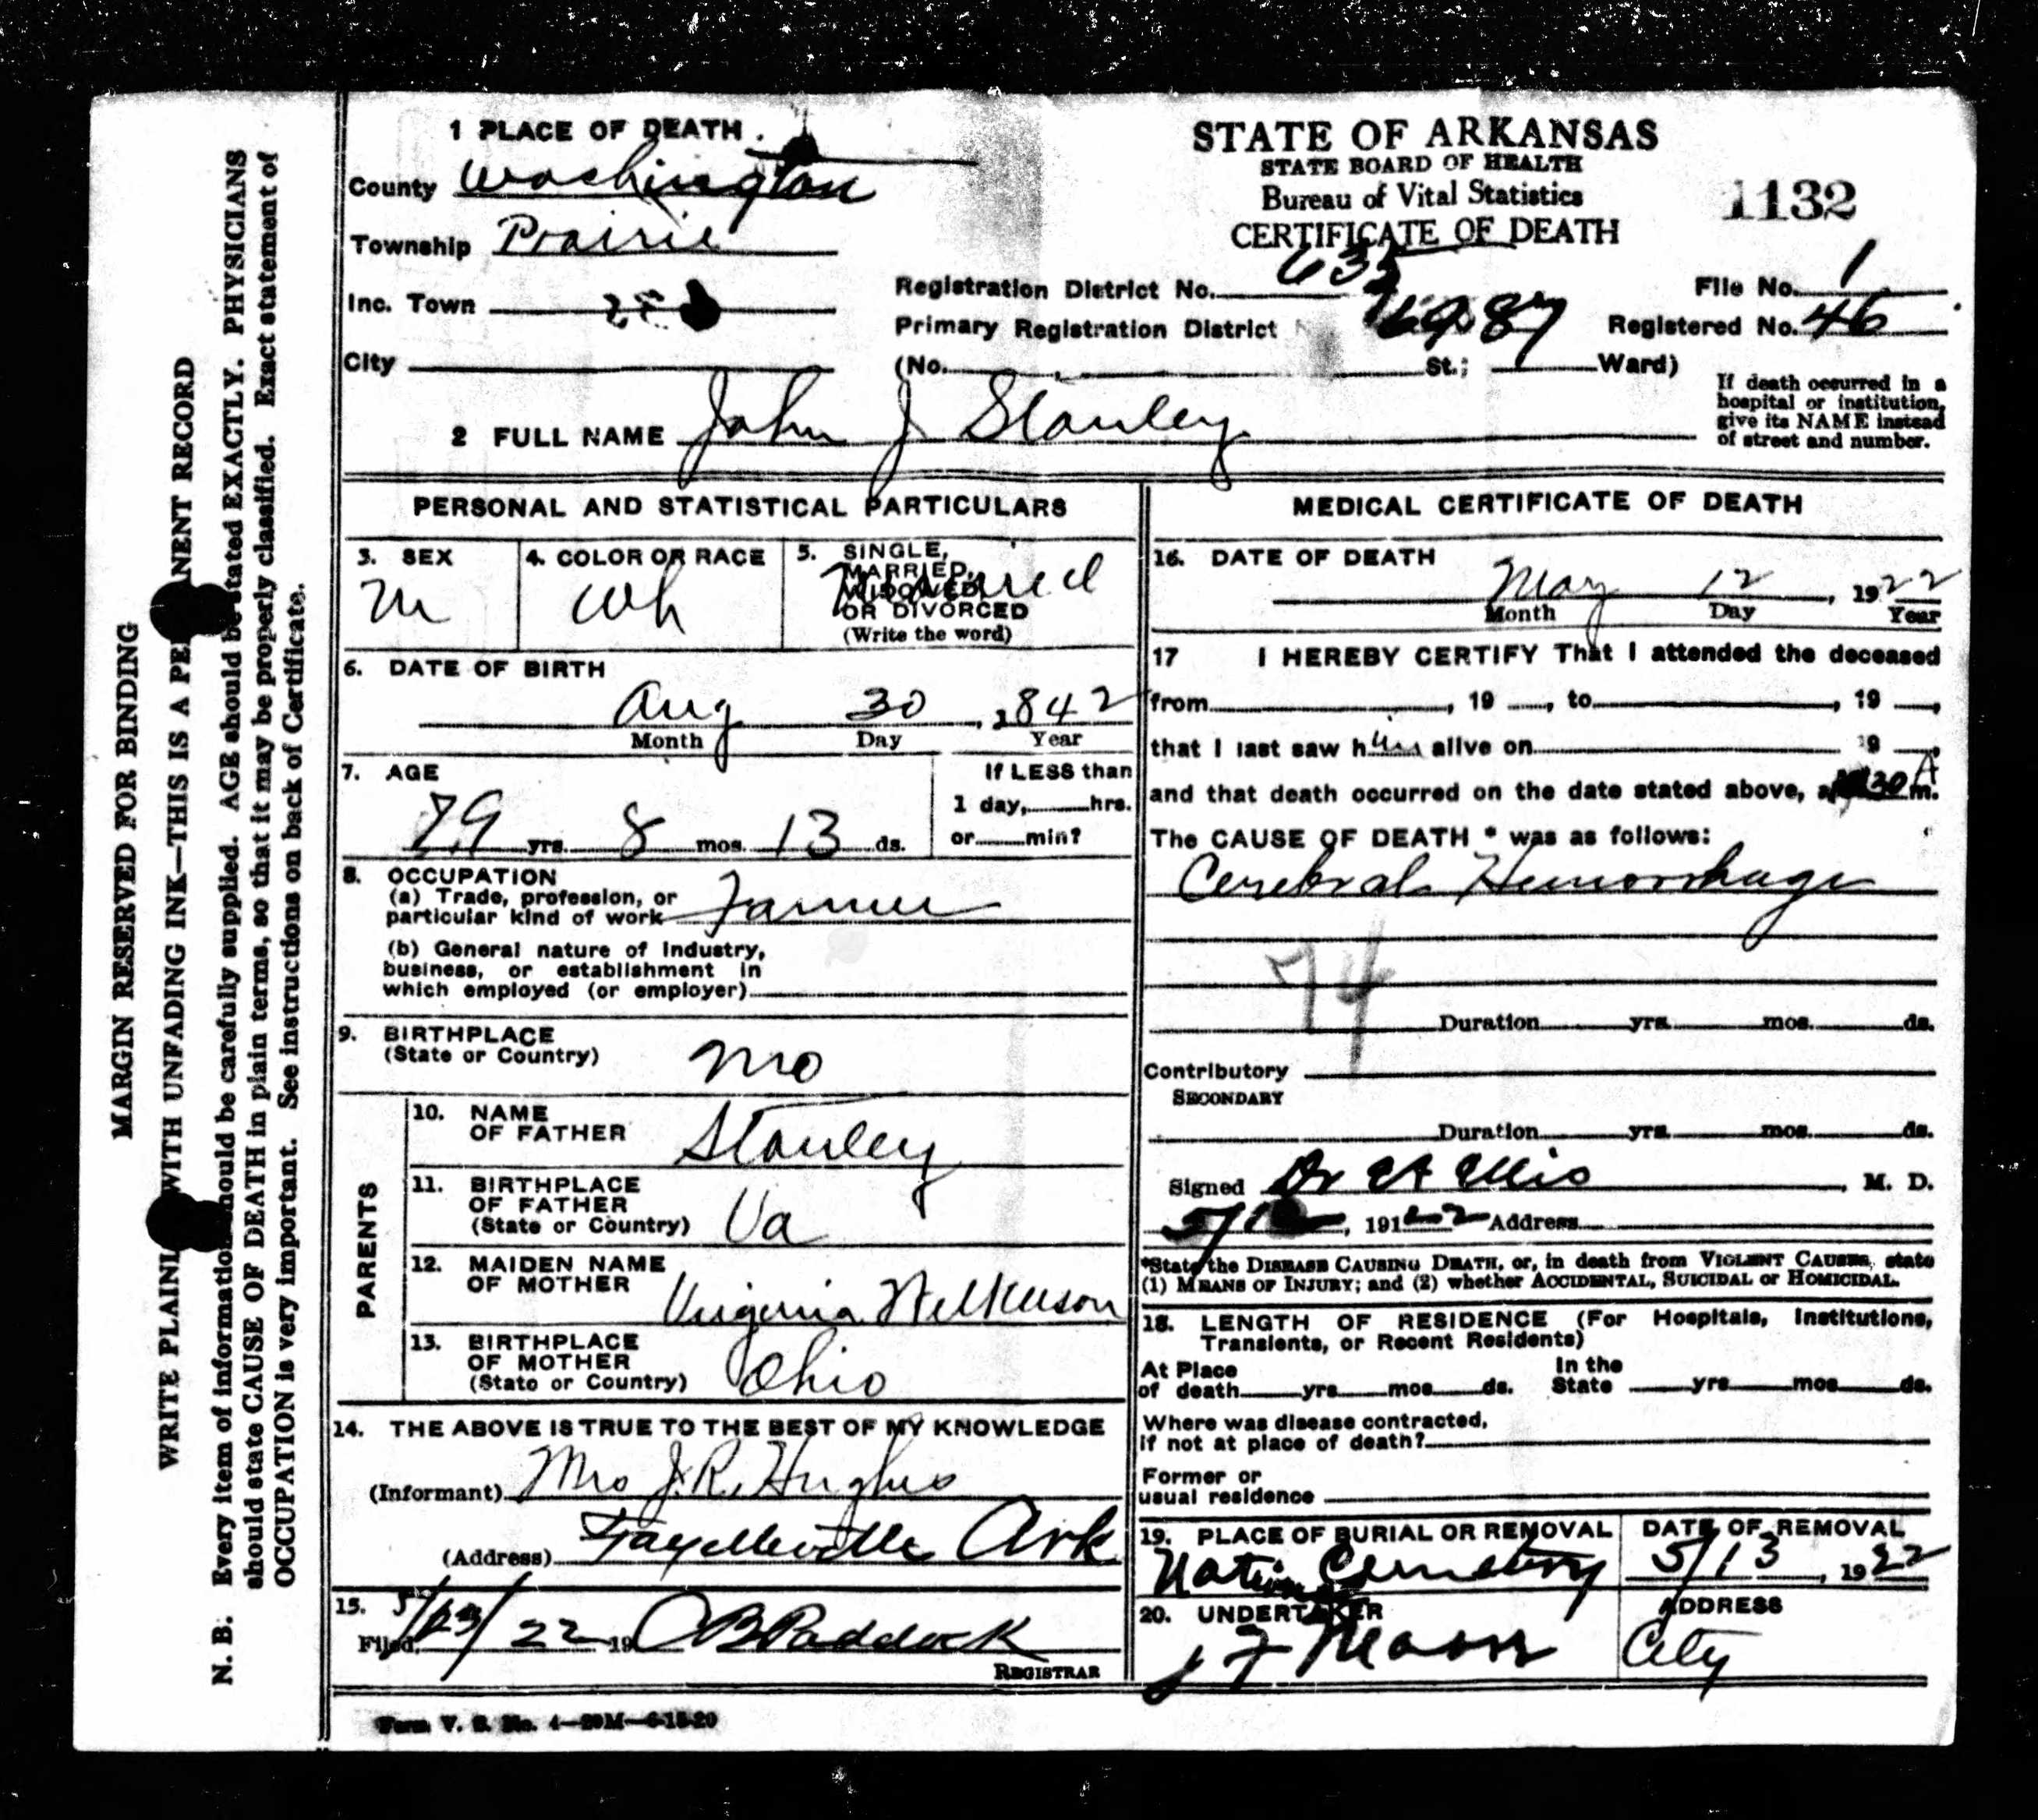 1 PLACE OF DEATH.
County Washington
Township Prairie
Inc. Town
City
STATE OF ARKANSAS
STATE BOARD OF HEALTH
Bureau of Vital Statistics
CERTIFICATE OF DEATH
1132
Registration District No. 635
File No. 1
Primary Registration District 6987
Registered No. 46
(No. St.; Ward)
If death occurred in a
hospital or institution,
give its NAME instead
of street and number.
2 FULL NAME John J Stanley
PERSONAL AND STATISTICAL PARTICULARS
3. SEX
M
4. COLOR OR RACE
Wh
5. SINGLE,
MARRIED,
WIDOWED,
OR DIVORCED
(Write the word)
Married
6. DATE OF BIRTH
Aug 30, 1842
Month Day Year
7. AGE
79 yrs. 8 mos. 13 ds.
If LESS than
1 day, hrs.
or min?
8. OCCUPATION
(a) Trade, profession, or
particular kind of work Farmer
(b) General nature of Industry,
business, or establishment in
which employed (or employer)
9. BIRTHPLACE
(State or Country) Mo
PARENTS
10. NAME
OF FATHER Stanley
11. BIRTHPLACE
OF FATHER
(State or Country) Va
12. MAIDEN NAME
OF MOTHER Virginia Wilkinson
13. BIRTHPLACE
OF MOTHER
(State or Country) Ohio
14. THE ABOVE IS TRUE TO THE BEST OF MY KNOWLEDGE
(Informant) Mrs J.R. Hughes
(Address) Fayetteville Ark
15.
Filed 5/23/22 19 OB Paddock
REGISTRAR
Form V. S. No. 4—20M—6-15-20
MEDICAL CERTIFICATE OF DEATH
16. DATE OF DEATH
May 12, 1922
Month Day Year
17 I HEREBY CERTIFY That I attended the deceased
from , 19 , to , 19 ,
that I last saw him alive on 19 ,
and that death occurred on the date stated above, 30 A m.
The CAUSE OF DEATH * was as follows:
Cerebral Hemorrhage
74
Duration yrs. mos. ds.
Contributory
SECONDARY
Duration yrs. mos. ds.
Signed Dr EF Ellis, M. D.
5/12, 1922 Address
*State the DISEASE CAUSING DEATH, or, in death from VIOLENT CAUSES, state
(1) MEANS OF INJURY; and (2) whether ACCIDENTAL, SUICIDAL or HOMICIDAL.
18. LENGTH OF RESIDENCE (For Hospitals, Institutions,
Transients, or Recent Residents)
At Place
of death yrs mos ds.
In the
State yrs mos ds.
Where was disease contracted,
If not at place of death?
Former or
usual residence
19. PLACE OF BURIAL OR REMOVAL
National Cemetery
DATE OF REMOVAL
5/13, 1922
20. UNDERTAKER
J F Moore
ADDRESS
City
MARGIN RESERVED FOR BINDING
WRITE PLAINLY WITH UNFADING INK—THIS IS A PERMANENT RECORD
N. B. Every item of information should be carefully supplied. AGE should be stated EXACTLY. PHYSICIANS
should state CAUSE OF DEATH in plain terms, so that it may be properly classified. Exact statement of
OCCUPATION is very important. See instructions on back of Certificate.